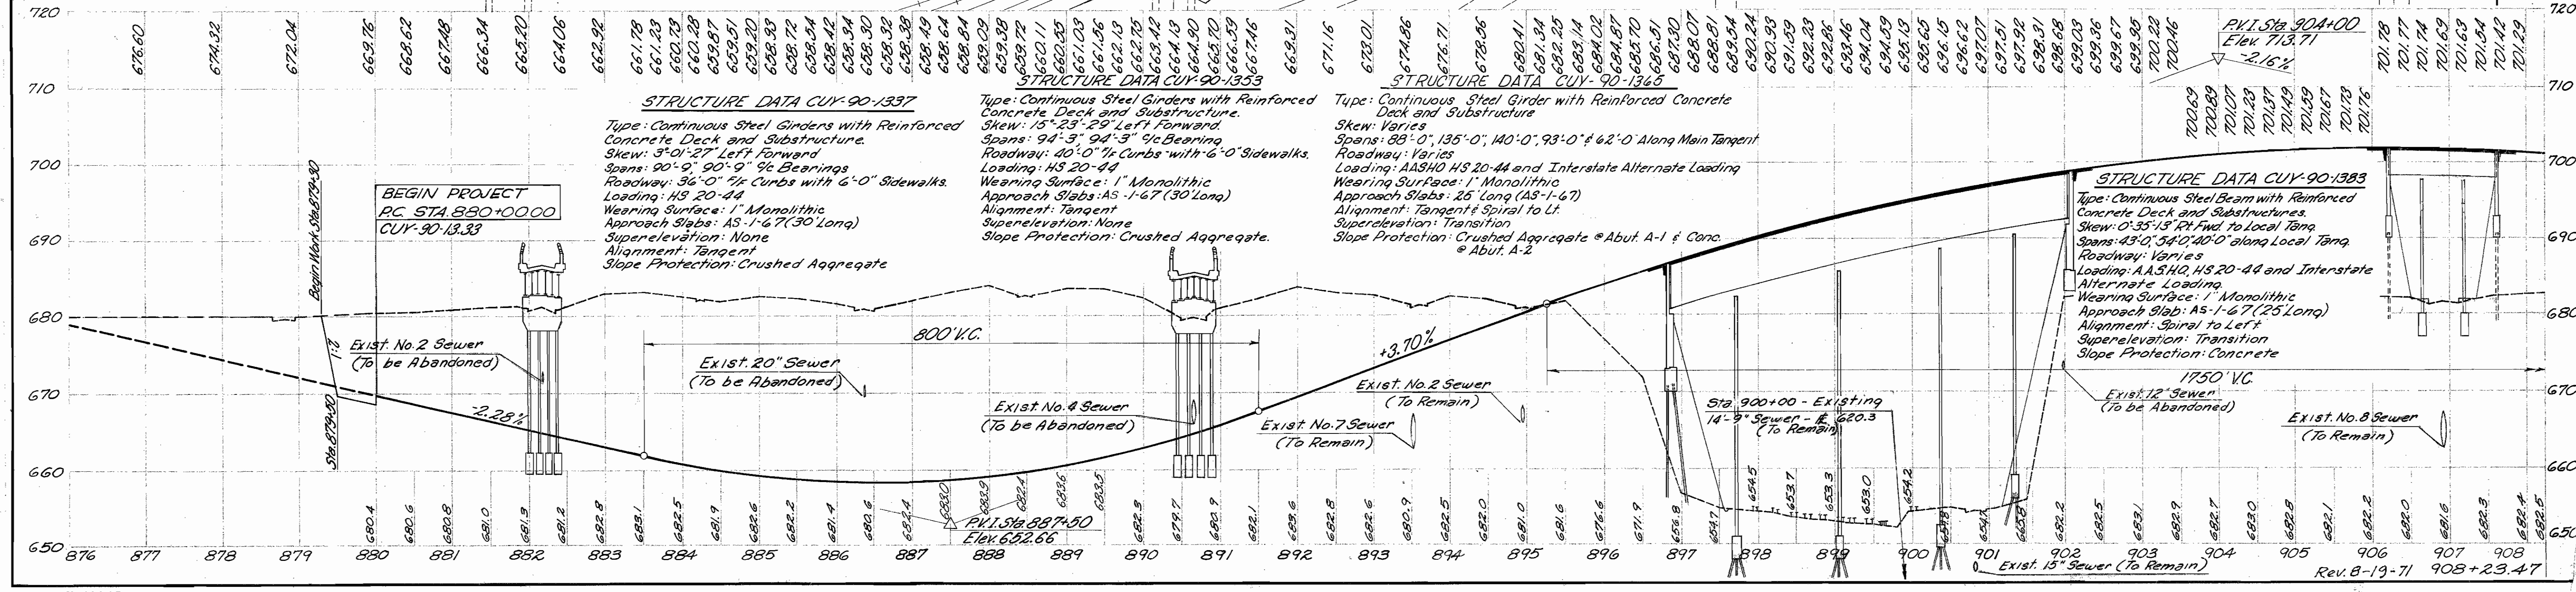 720
710
700
690
680
670
660
650
676.60 674.32 672.04 669.76 668.62 667.48 666.34 665.20 664.06 662.92 661.78 661.23 660.73 660.28 659.87 659.51 659.20 658.93 658.72 658.54 658.42 658.34 658.30 658.32 658.38 658.49 658.64 658.84 659.09 659.38 659.72 660.11 660.55 661.03 661.56 662.13 662.75 663.42 664.13 664.90 665.70 666.59 667.46 669.31 671.16 673.01 674.86 676.71 678.56 680.41 681.34 682.25 683.14 684.02 684.87 685.70 686.51 687.30 688.07 688.81 689.54 690.24 690.93 691.59 692.23 692.86 693.46 694.04 694.59 695.13 695.65 696.15 696.62 697.07 697.51 697.92 698.31 698.68 699.03 699.36 699.67 699.95 700.22 700.46
700.69 700.89 701.07 701.23 701.37 701.49 701.59 701.67 701.73 701.76
701.78 701.77 701.74 701.69 701.63 701.54 701.42 701.29
P.V.I. Sta. 904+00
Elev. 713.71
-2.16%
STRUCTURE DATA CUY-90-1337
Type: Continuous Steel Girders with Reinforced
Concrete Deck and Substructure.
Skew: 3°-01'-27" Left Forward
Spans: 90'-9", 90'-9" c/c Bearings
Roadway: 36'-0" F/F Curbs with 6'-0" Sidewalks.
Loading: HS 20-44
Wearing Surface: 1" Monolithic
Approach Slabs: AS-1-67 (30' Long)
Superelevation: None
Alignment: Tangent
Slope Protection: Crushed Aggregate
STRUCTURE DATA CUY-90-1353
Type: Continuous Steel Girders with Reinforced
Concrete Deck and Substructure.
Skew: 15°-23'-29" Left Forward.
Spans: 94'-3", 94'-3" c/c Bearing
Roadway: 40'-0" F/F Curbs with 6'-0" Sidewalks.
Loading: HS 20-44
Wearing Surface: 1" Monolithic
Approach Slabs: AS-1-67 (30' Long)
Alignment: Tangent
Superelevation: None
Slope Protection: Crushed Aggregate.
STRUCTURE DATA CUY-90-1365
Type: Continuous Steel Girder with Reinforced Concrete
Deck and Substructure
Skew: Varies
Spans: 88'-0", 135'-0", 140'-0", 93'-0" & 62'-0" Along Main Tangent
Roadway: Varies
Loading: AASHO HS 20-44 and Interstate Alternate Loading
Wearing Surface: 1" Monolithic
Approach Slabs: 25' Long (AS-1-67)
Alignment: Tangent & Spiral to Lt.
Superelevation: Transition
Slope Protection: Crushed Aggregate @ Abut. A-1 & Conc.
@ Abut. A-2
STRUCTURE DATA CUY-90-1383
Type: Continuous Steel Beam with Reinforced
Concrete Deck and Substructures.
Skew: 0°-35'-13" Rt. Fwd. to Local Tang.
Spans: 43'-0", 54'-0", 40'-0" along Local Tang.
Roadway: Varies
Loading: A.A.S.H.O. HS 20-44 and Interstate
Alternate Loading.
Wearing Surface: 1" Monolithic
Approach Slab: AS-1-67 (25' Long)
Alignment: Spiral to Left
Superelevation: Transition
Slope Protection: Concrete
Begin Work Sta. 879+30
BEGIN PROJECT
P.C. STA. 880+00.00
CUY-90-13.33
1:2
Sta. 879+50
Exist. No. 2 Sewer
(To be Abandoned)
-2.28%
800' V.C.
Exist. 20" Sewer
(To be Abandoned)
Exist. No. 4 Sewer
(To be Abandoned)
+3.70%
Exist. No. 7 Sewer
(To Remain)
Exist. No. 2 Sewer
(To Remain)
Sta. 900+00 - Existing
14'-9" Sewer - ℄ 620.3
(To Remain)
1750' V.C.
Exist. 12" Sewer
(To be Abandoned)
Exist. No. 8 Sewer
(To Remain)
680.4 680.6 680.8 681.0 681.3 681.2 682.8 683.1 682.5 681.9 682.6 682.2 681.4 680.6 682.4 683.0 683.9 682.4 683.6 683.5 682.3 679.7 680.9 682.1 683.6 682.8 682.6 680.9 682.5 682.0 681.0 681.6 676.6 671.9 656.8 654.7 654.5 653.7 653.3 653.0 654.2 682.2 682.5 683.1 682.9 682.7 683.0 682.8 682.1 682.2 682.0 681.6 682.3 682.4 682.5
P.V.I. Sta. 887+50
Elev. 652.66
876 877 878 879 880 881 882 883 884 885 886 887 888 889 890 891 892 893 894 895 896 897 898 899 900 901 902 903 904 905 906 907 908
Exist. 15" Sewer (To Remain)
Rev. 8-19-71 908+23.47
720
710
700
690
680
670
660
650